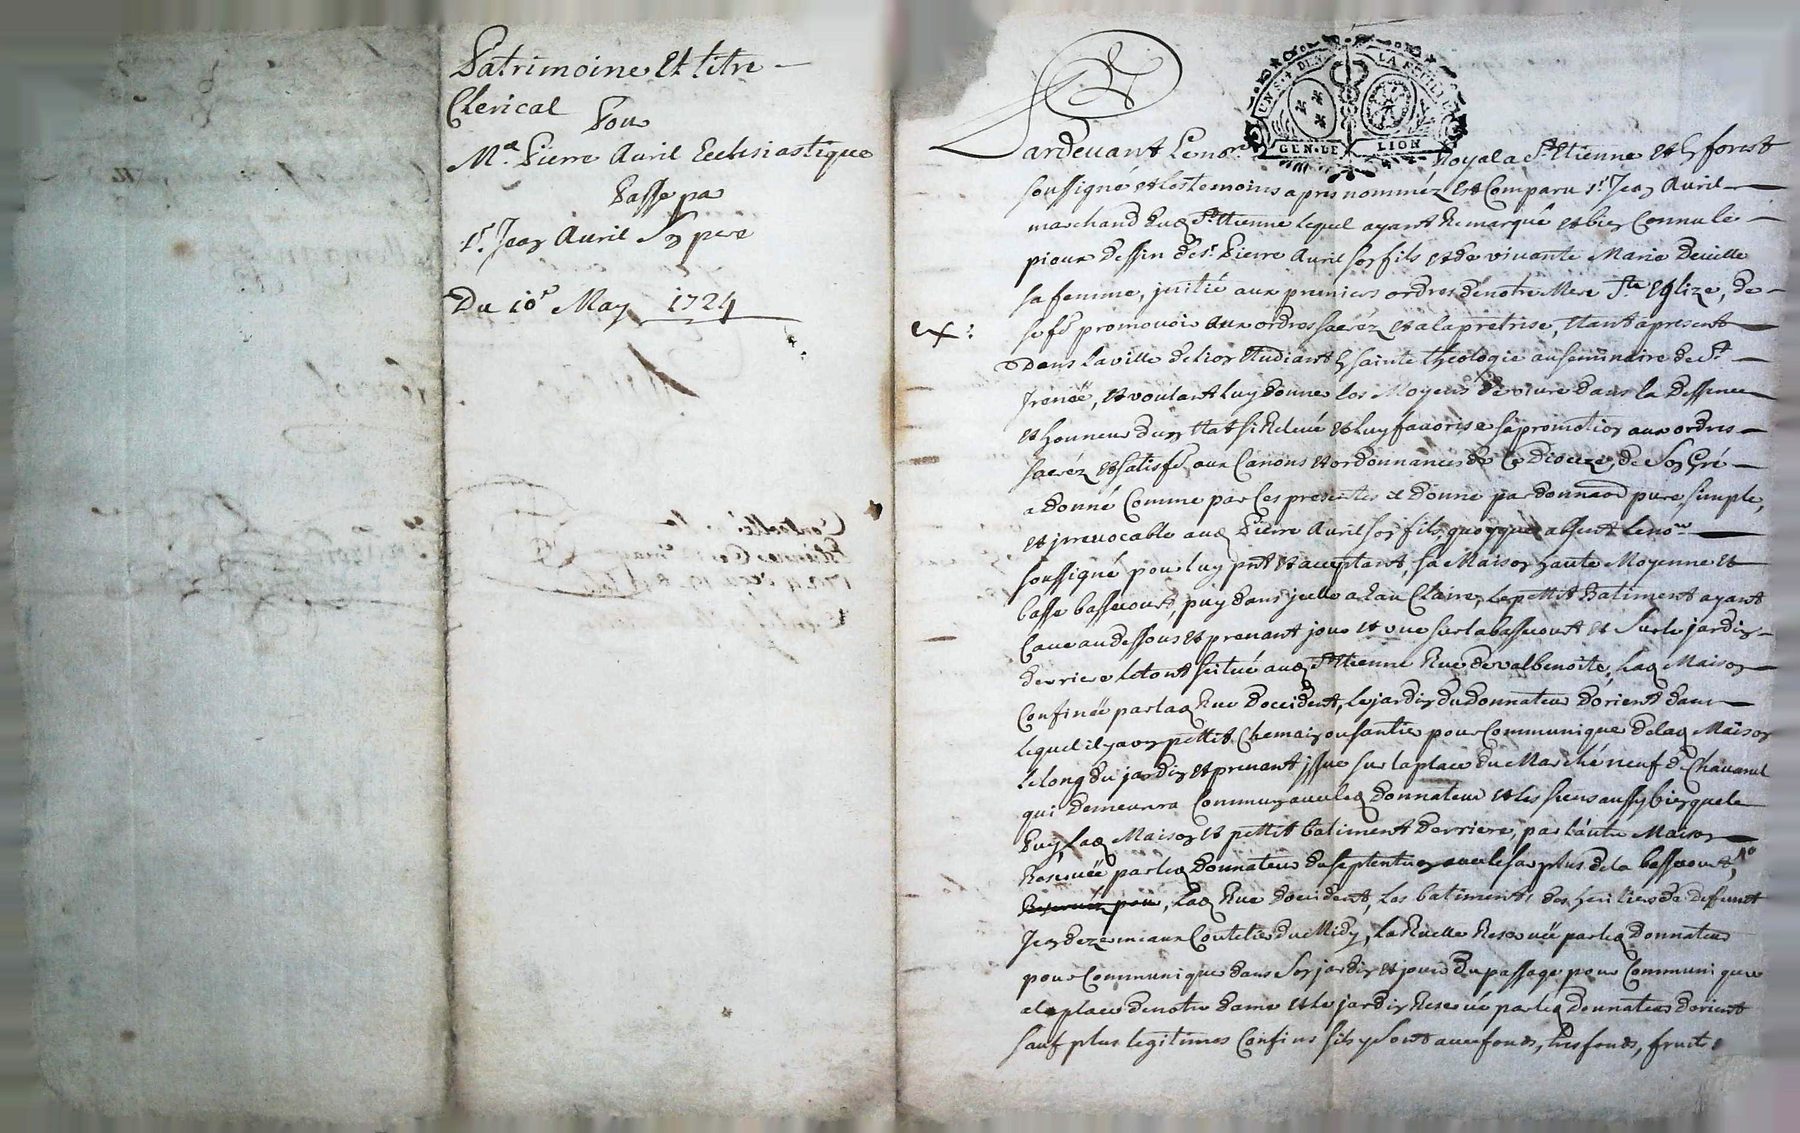 Patrimoine Et titre
Clerical
Pour
Me. Pierre Avril Ecclesiastique
Passe par
sr. Jean Avril son pere
Du 10e May 1724
UN S. 4 DEN. LA FEUILLE
GEN. DE LION
Pardevant Le nore. Royal a St. Etienne et en forest
soussigné et les temoins apres nomméz est Comparu sr. Jean Avril
marchand dud. St. Etienne lequel ayant Remarqué et bien Connu le
pieux dessin de sr. Pierre Avril son fils et de vivante Marie Deville
sa femme, initié aux premiers ordres de notre Mere Ste. Eglize, de
ex:
se fe. promovoir aux ordres sacréz et a la pretrise, Etant apresent
Dans la ville de lion Etudiant en sainte theologie au seminaire de St.
Irenéë, et voulant luy donner les Moyens de vivre dans la dessence
et honneur dun Etat si Relevé et luy favoriser sa promotion aux ordres
sacréz et satisfe. aux Canons et ordonnances de Ce Dioceze, de Son Gré
a donné Comme par Ces presentes il donne par donnaon pure simple,
et irrevocable aud. Pierre Avril son fils, quoyque absent Le nore.
soussigné pour luy pnt et acceptant, sa Maison haute Moyenne et
basse bassecourt, puy dans jcelle a Eau Claire, le pettit Batiment ayant
Cave au dessous et prenant jour et vue sur la bassecourt et Sur le jardin
derriere le tout scitué aud. St. Etienne Rue de valbenoite, Lad. Maison
Confinéë par lad. Rue d'occident, le jardin du donnateur d'orient dans
lequel il y a un pettit Chemain ou santier pour Communiquer de lad. Maison
le long du jardin et prenant jssue sur la place du Marché neuf de Chavanel
qui demeurera Commun avec led. donnateur et les siens aussy bien que le
Puy, lad. Maison et pettit batiment derriere, par l'autre Maison
Reservéë par led. donnateur du septentrion avec le surplus de la bassecourt,
Reservéë pour, Lad. Rue d'occident, Les batiments des heritiers de defunt
Jean dezermeaux Coutelier du Midy, La Ruelle Reservéë par led. Donnateur
pour Communiquer dans Son jardin et jouir du passage pour Communiquer
a la place de notre dame et le jardin Reservé par led. Donnateur d'orient
sauf plus legitimes Confins sils y Sont avec fonds, tresfonds, fruits